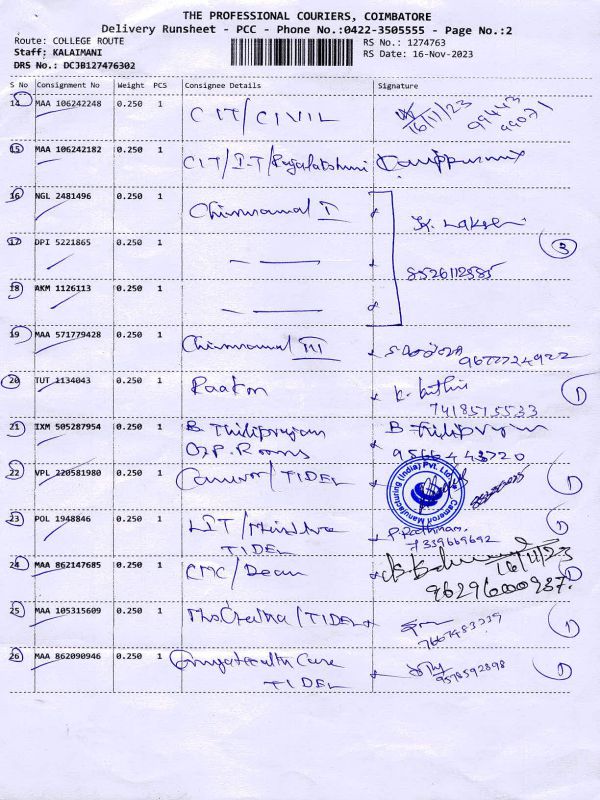 THE PROFESSIONAL COURIERS, COIMBATORE
Delivery Runsheet - PCC - Phone No.:0422-3505555 - Page No.:2
Route: COLLEGE ROUTE
Staff: KALAIMANI
DRS No.: DCJB127476302
RS No.: 1274763
RS Date: 16-Nov-2023
S No Consignment No Weight PCS Consignee Details Signature
14 MAA 106242248 0.250 1 CIT/CIVIL 16/11/23
15 MAA 106242182 0.250 1 CIT/I.T/Rajalakshmi
16 NGL 2481496 0.250 1 Chinnamal I
17 DPI 5221865 0.250 1 8526112585 3
18 AKM 1126113 0.250 1
19 MAA 571779428 0.250 1 Chinnamal III 9677724922
20 TUT 1134043 0.250 1 7418515533 1
21 IXM 505287954 0.250 1 B Thiliprajan B Thiliprajan
O2P. Rooms 9566443720
22 VPL 220581980 0.250 1 Cameron/TIDEL 1
Cameron Manufacturing (India) Pvt. Ltd.
23 POL 1948846 0.250 1 TIDEL 7339669692 1
24 MAA 862147685 0.250 1 CMC/Dean 16/11/23
9629600987. 1
25 MAA 105315609 0.250 1 /TIDEL 7667483239 1
26 MAA 862090946 0.250 1 Care 9578592898 1
TIDEL